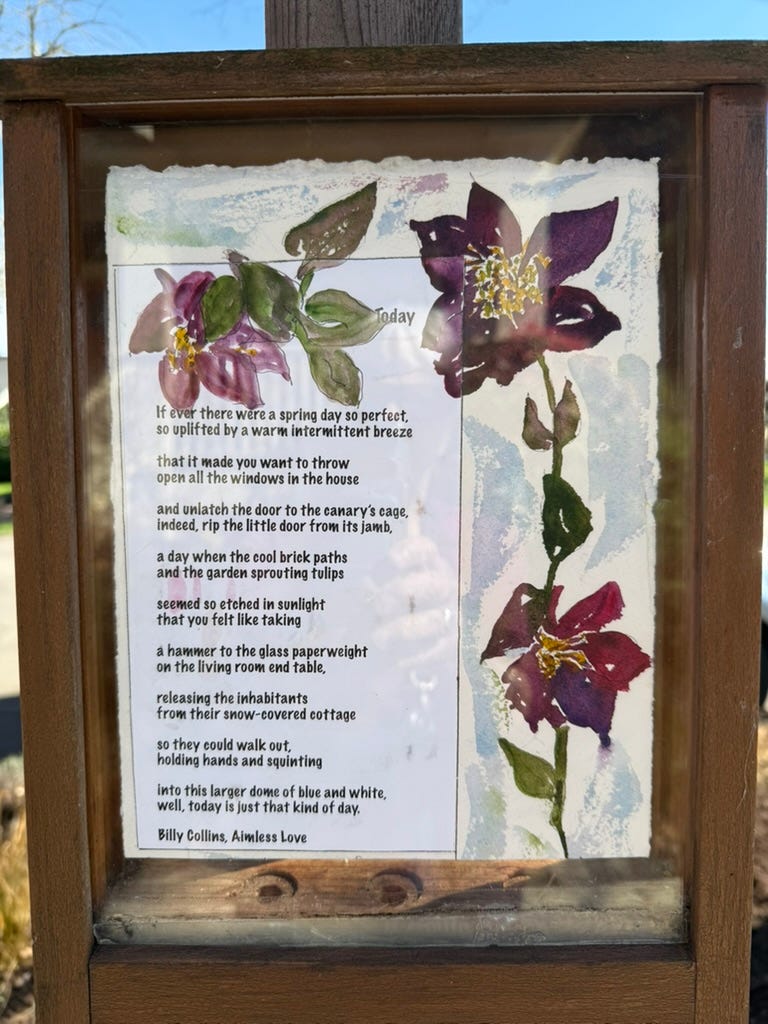 Today
If ever there were a spring day so perfect,
so uplifted by a warm intermittent breeze
that it made you want to throw
open all the windows in the house
and unlatch the door to the canary's cage,
indeed, rip the little door from its jamb,
a day when the cool brick paths
and the garden sprouting tulips
seemed so etched in sunlight
that you felt like taking
a hammer to the glass paperweight
on the living room end table,
releasing the inhabitants
from their snow-covered cottage
so they could walk out,
holding hands and squinting
into this larger dome of blue and white,
well, today is just that kind of day.
Billy Collins, Aimless Love